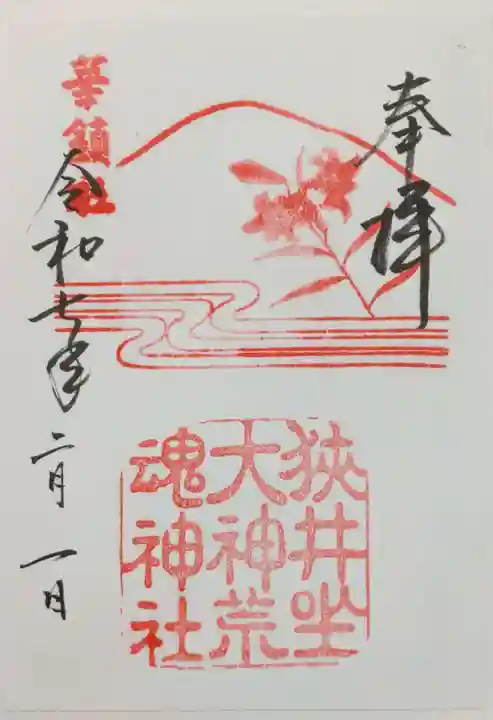 奉拝
華鎮社
令和七年二月一日
狭井坐
大神荒
魂神社